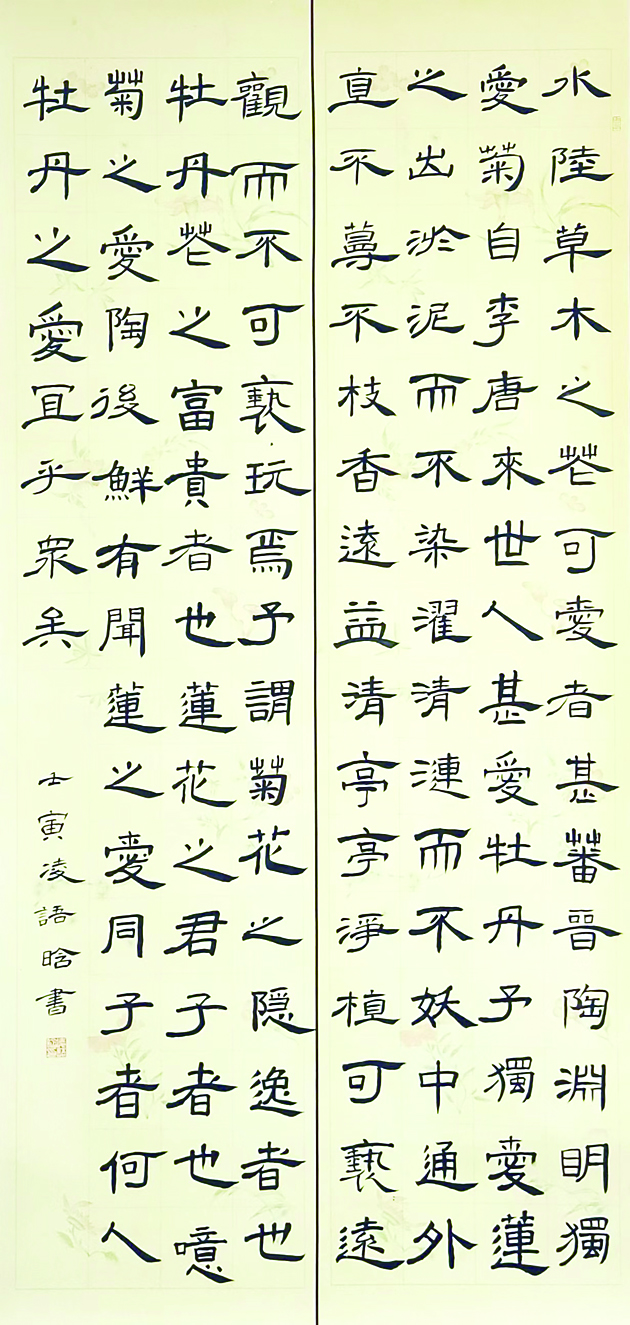 水陸草木之芲可愛者甚蕃晉陶淵眀獨
愛菊自李唐來世人甚愛牡丹予獨愛蓮
之出淤泥而不染濯清漣而不妖中通外
直不蔓不枝香遠益清亭亭淨植可褻遠
觀而不可褻玩焉予謂菊花之隱逸者也
牡丹芲之富貴者也蓮花之君子者也噫
菊之愛陶後鮮有聞蓮之愛同子者何人
牡丹之愛宜乎眾矣
壬寅凌語晗書